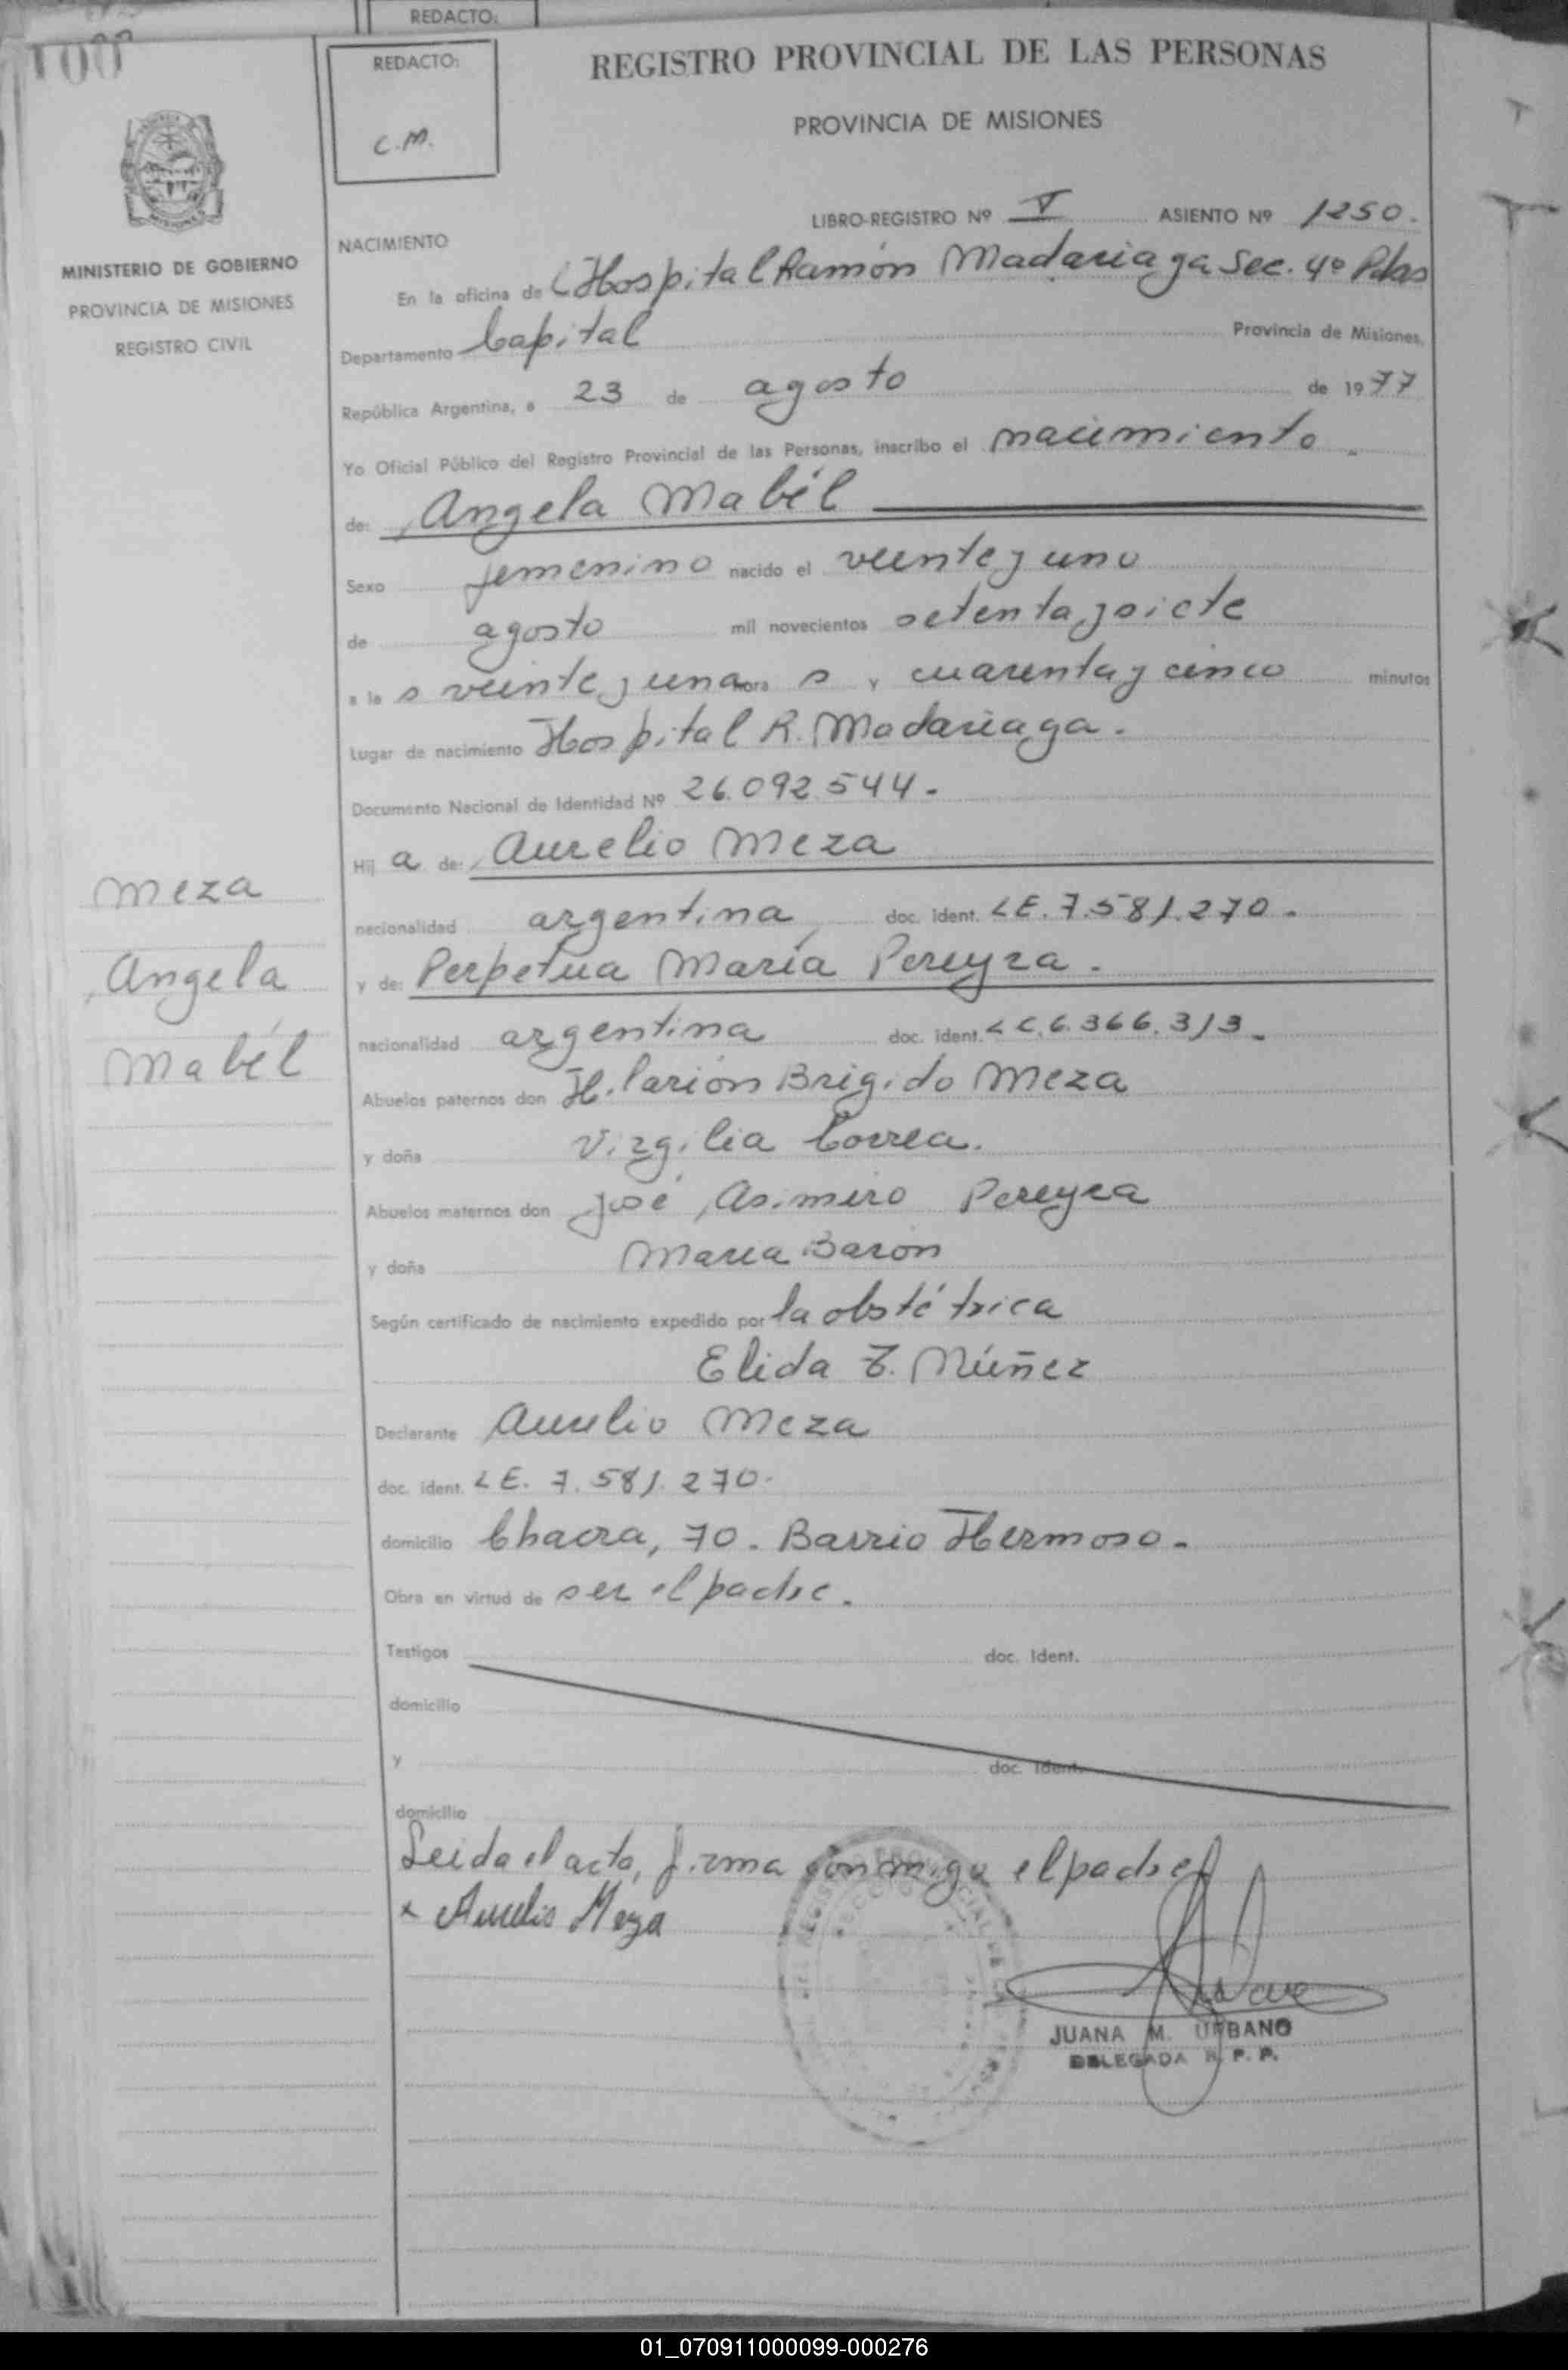 REDACTO:
100
REDACTO:
C.M.
REGISTRO PROVINCIAL DE LAS PERSONAS
PROVINCIA DE MISIONES
LIBRO-REGISTRO Nº V ASIENTO Nº 1250.
NACIMIENTO
MINISTERIO DE GOBIERNO
PROVINCIA DE MISIONES
REGISTRO CIVIL
En la oficina de Hospital Ramón Madariaga Sec. 4º Pdas
Departamento Capital Provincia de Misiones,
República Argentina, a 23 de agosto de 1977
Yo Oficial Público del Registro Provincial de las Personas, inscribo el nacimiento
de: Angela Mabél
Sexo femenino nacido el veinte y uno
de agosto mil novecientos setenta y siete
a la s veinte y una hora s y cuarenta y cinco minutos
Lugar de nacimiento Hospital R. Madariaga.
Documento Nacional de Identidad Nº 26.092.544-
Hij a de: Aurelio Meza
nacionalidad argentina doc. ident. LE. 7.581.270-
y de: Perpetua María Pereyra.
nacionalidad argentina doc. ident. LC. 6.366.313-
Abuelos paternos don Hilarión Brigido Meza
y doña Virgilia Correa.
Abuelos maternos don José Asimiro Pereyra
y doña Maria Barón
Según certificado de nacimiento expedido por la obstétrica
Elida Z. Núñez
Declarante Aurelio Meza
doc. ident. LE. 7.581.270.
domicilio Chacra, 70. Barrio Hermoso.
Obra en virtud de ser el padre.
Testigos doc. Ident.
domicilio
y doc. Ident.
domicilio
Leida el acta, firma conmigo el padre
x Aurelio Meza
JUANA M. URBANO
DELEGADA R. P. P.
Meza
Angela
Mabél
01_070911000099-000276